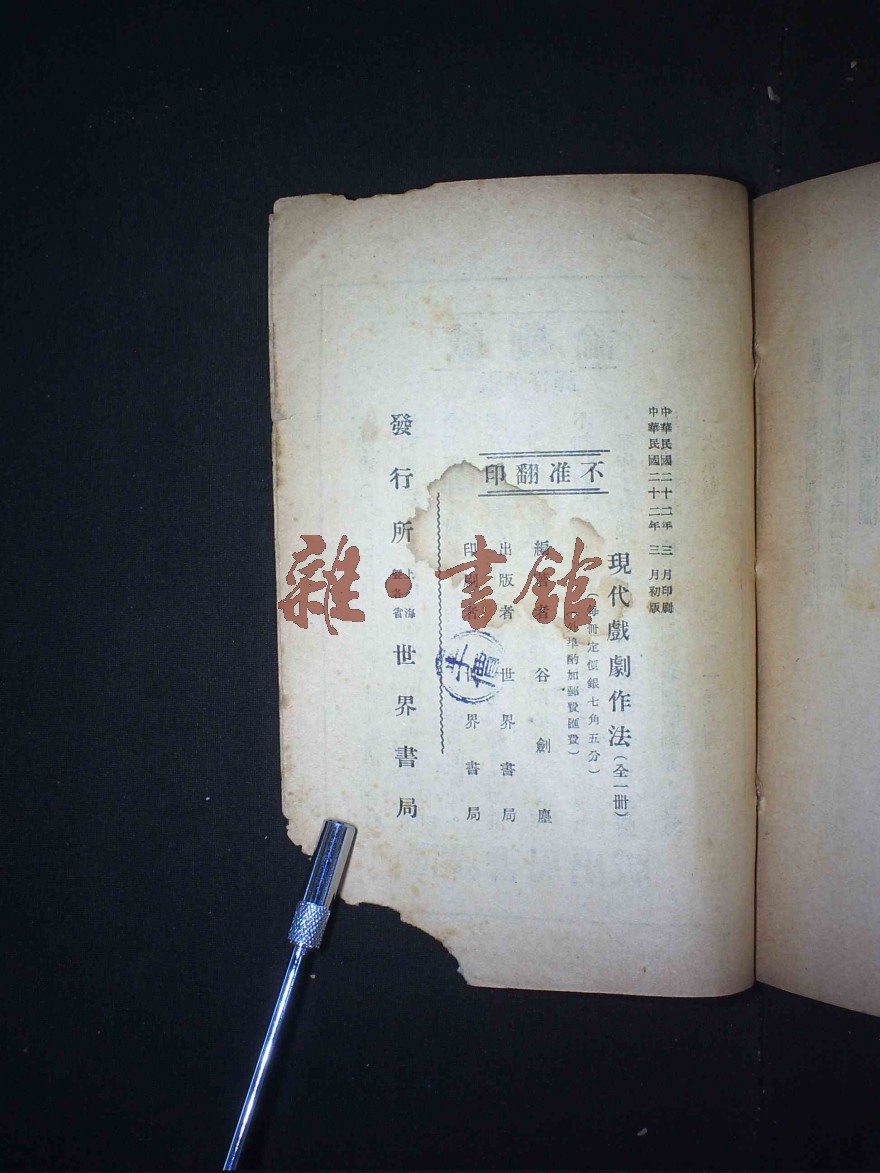 中華民國二十二年三月印刷
中華民國二十二年三月初版
現代戲劇作法(全一冊)
(每冊定價銀七角五分)
酌加郵費匯費)
不准翻印
編著者 谷劍塵
出版者 世界書局
印刷者 世界書局
發行所 上海 各省 世界書局
雜·書館